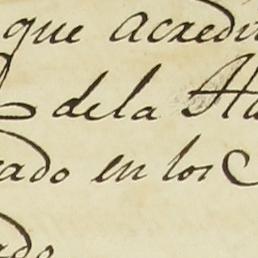 que acredi
de la Ha
ado en los
ado